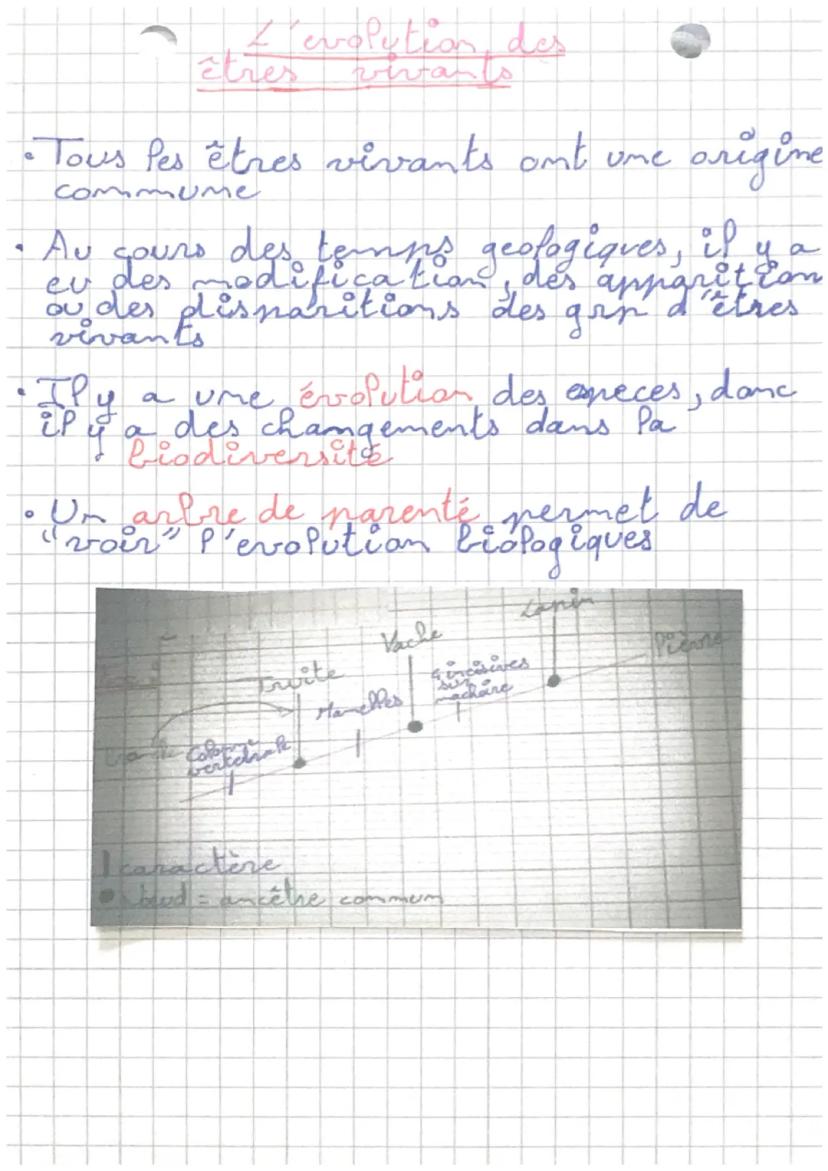 L'evolution des
êtres vivants
• Tous les êtres vivants ont une origine
commune
• Au cours des temps geologiques, il y a
eu des modification, des apparition
ou des disparitions des grp d'êtres
vivants
• Il y a une évolution des especes, donc
il y a des changements dans la
biodiversité
• Un arbre de parenté permet de
"voir" l'evolution biologiques
Lapin
Vache
Pierre
Truite
4 incisives
sur
machoire
Mamelles
Colonne
vertebrale
| caractère
= ancêtre commun